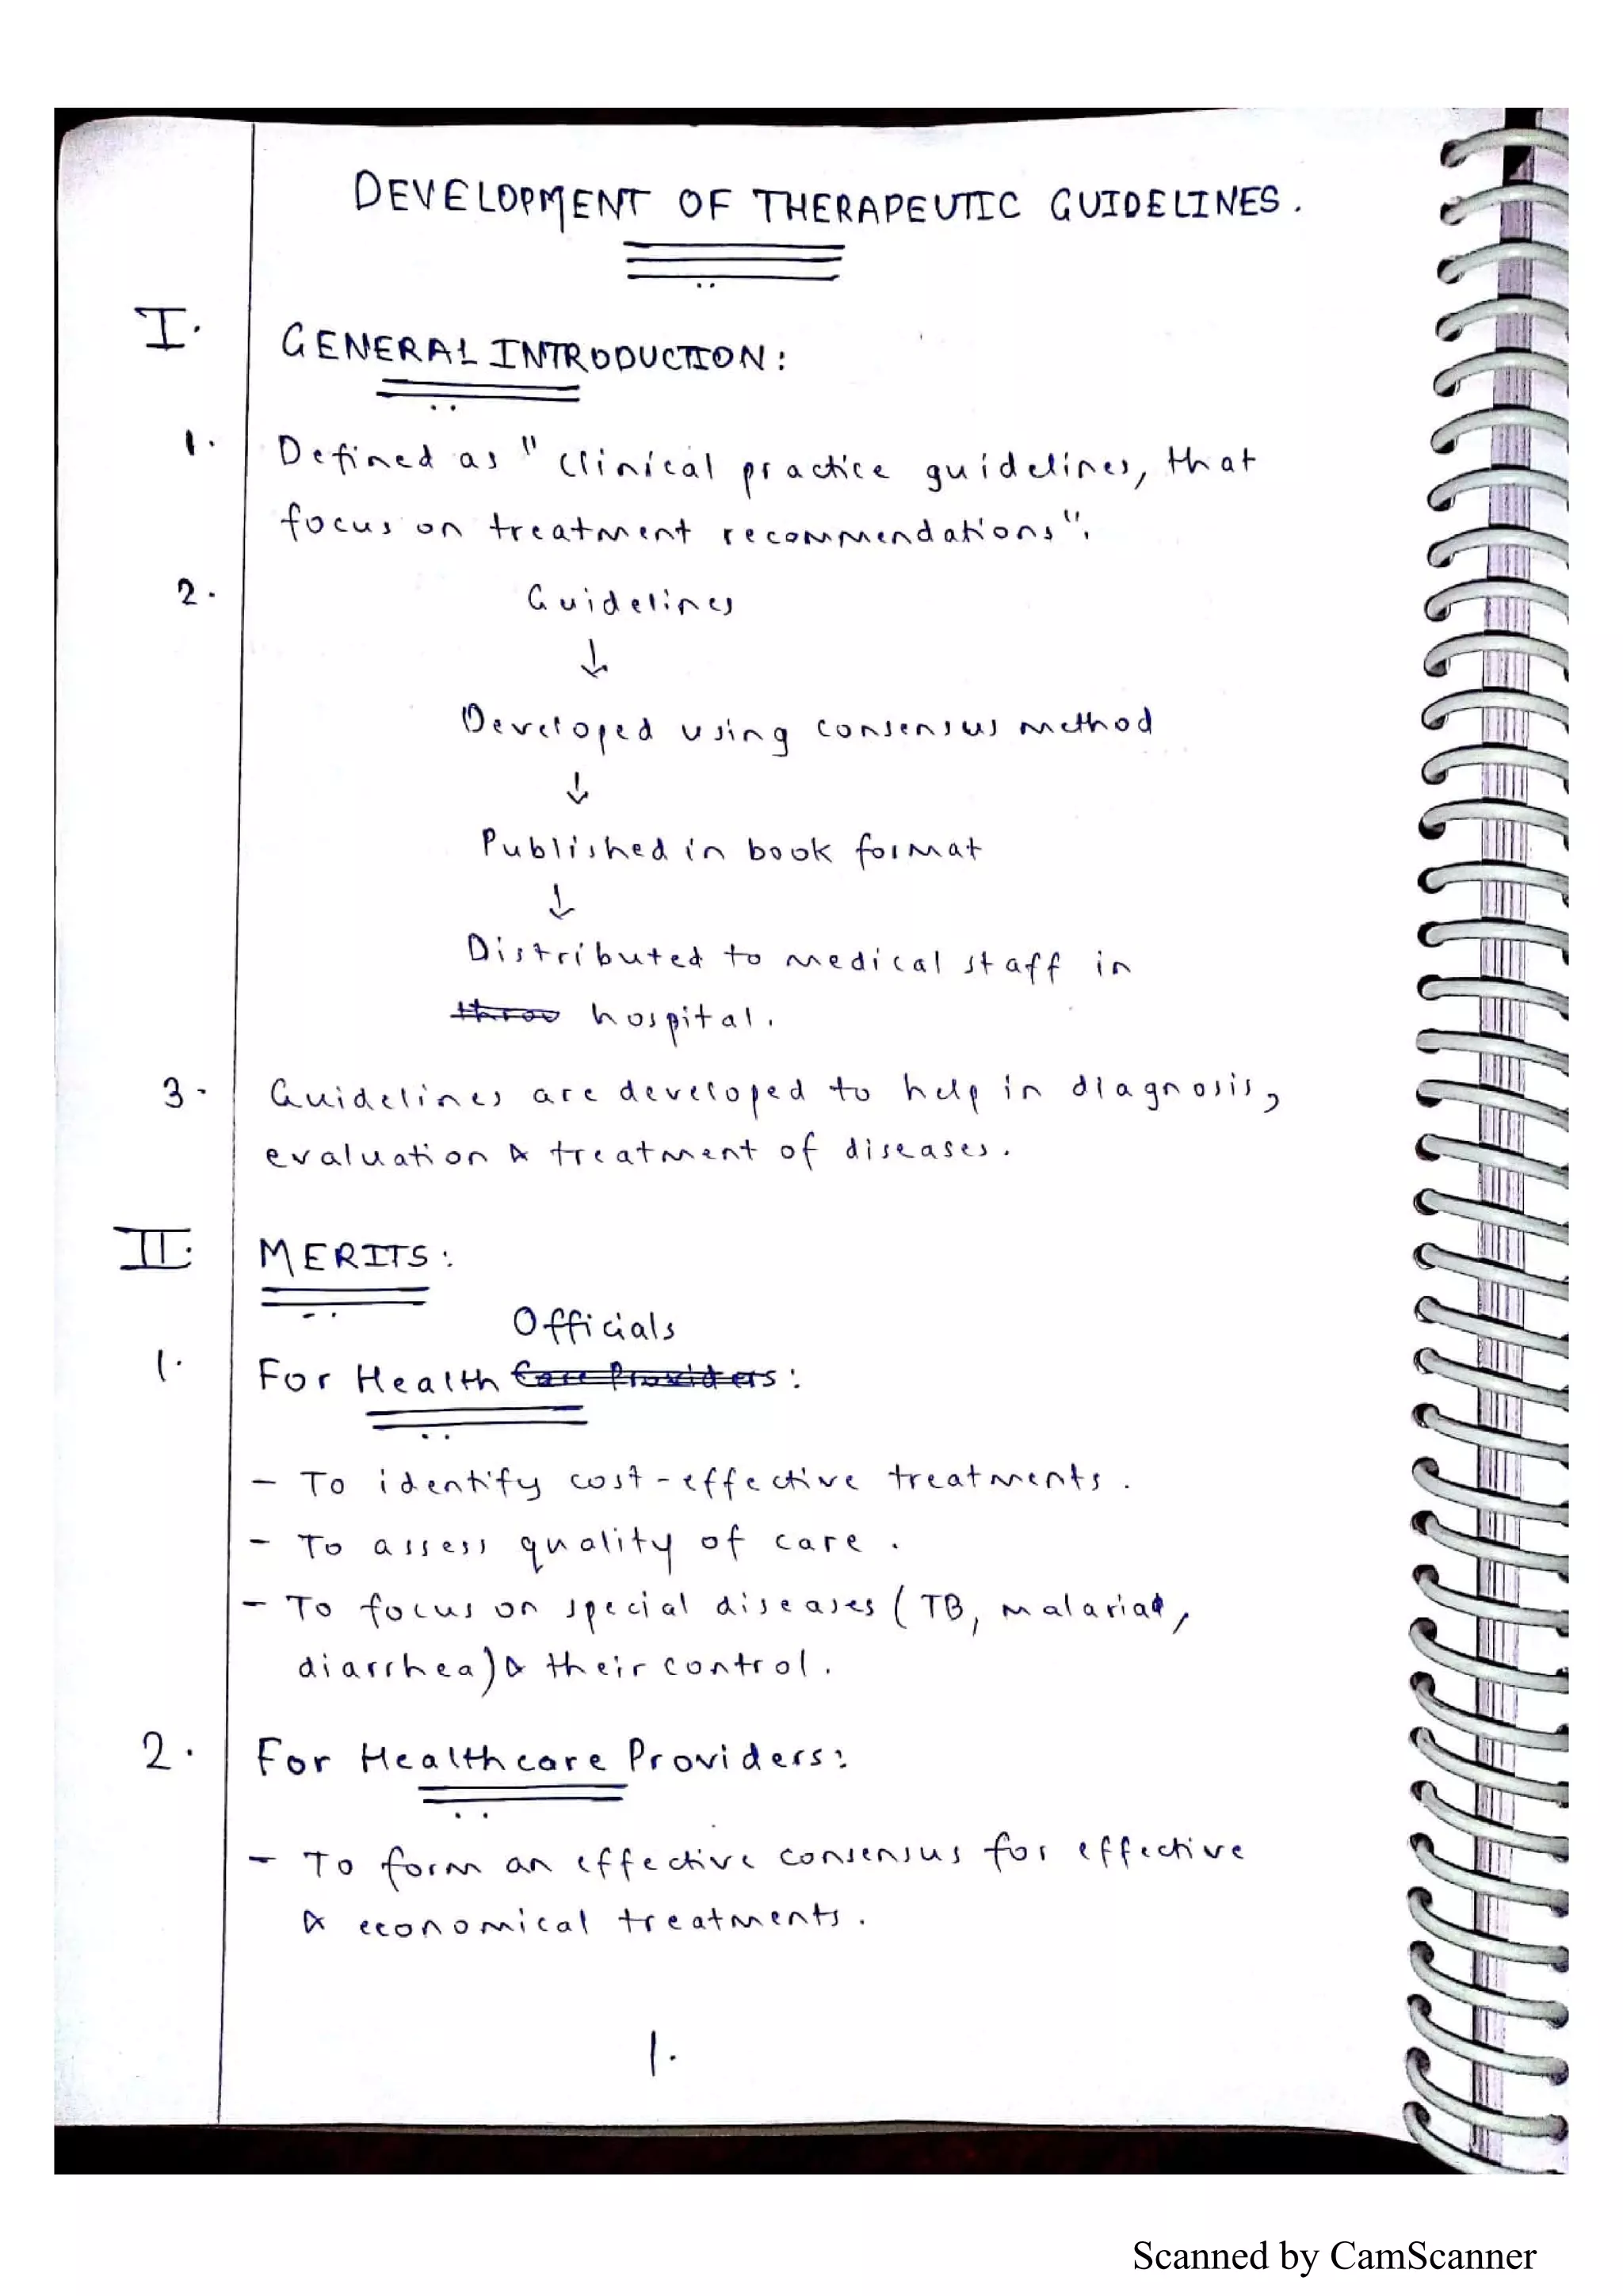 DEVELOPMENT OF THERAPEUTIC GUIDELINES.
I. GENERAL INTRODUCTION:
1. Defined as "clinical practice guidelines, that
focus on treatment recommendations".
2. Guidelines
↓
Developed using consensus method
↓
Published in book format
↓
Distributed to medical staff in
hospital.
3. Guidelines are developed to help in diagnosis,
evaluation & treatment of diseases.
II. MERITS:
Officials
1. For Health Care Providers:
- To identify cost-effective treatments.
- To assess quality of care.
- To focus on special diseases (TB, malaria,
diarrhea) & their control.
2. For Healthcare Providers:
- To form an effective consensus for effective
& economical treatments.
1.
Scanned by CamScanner